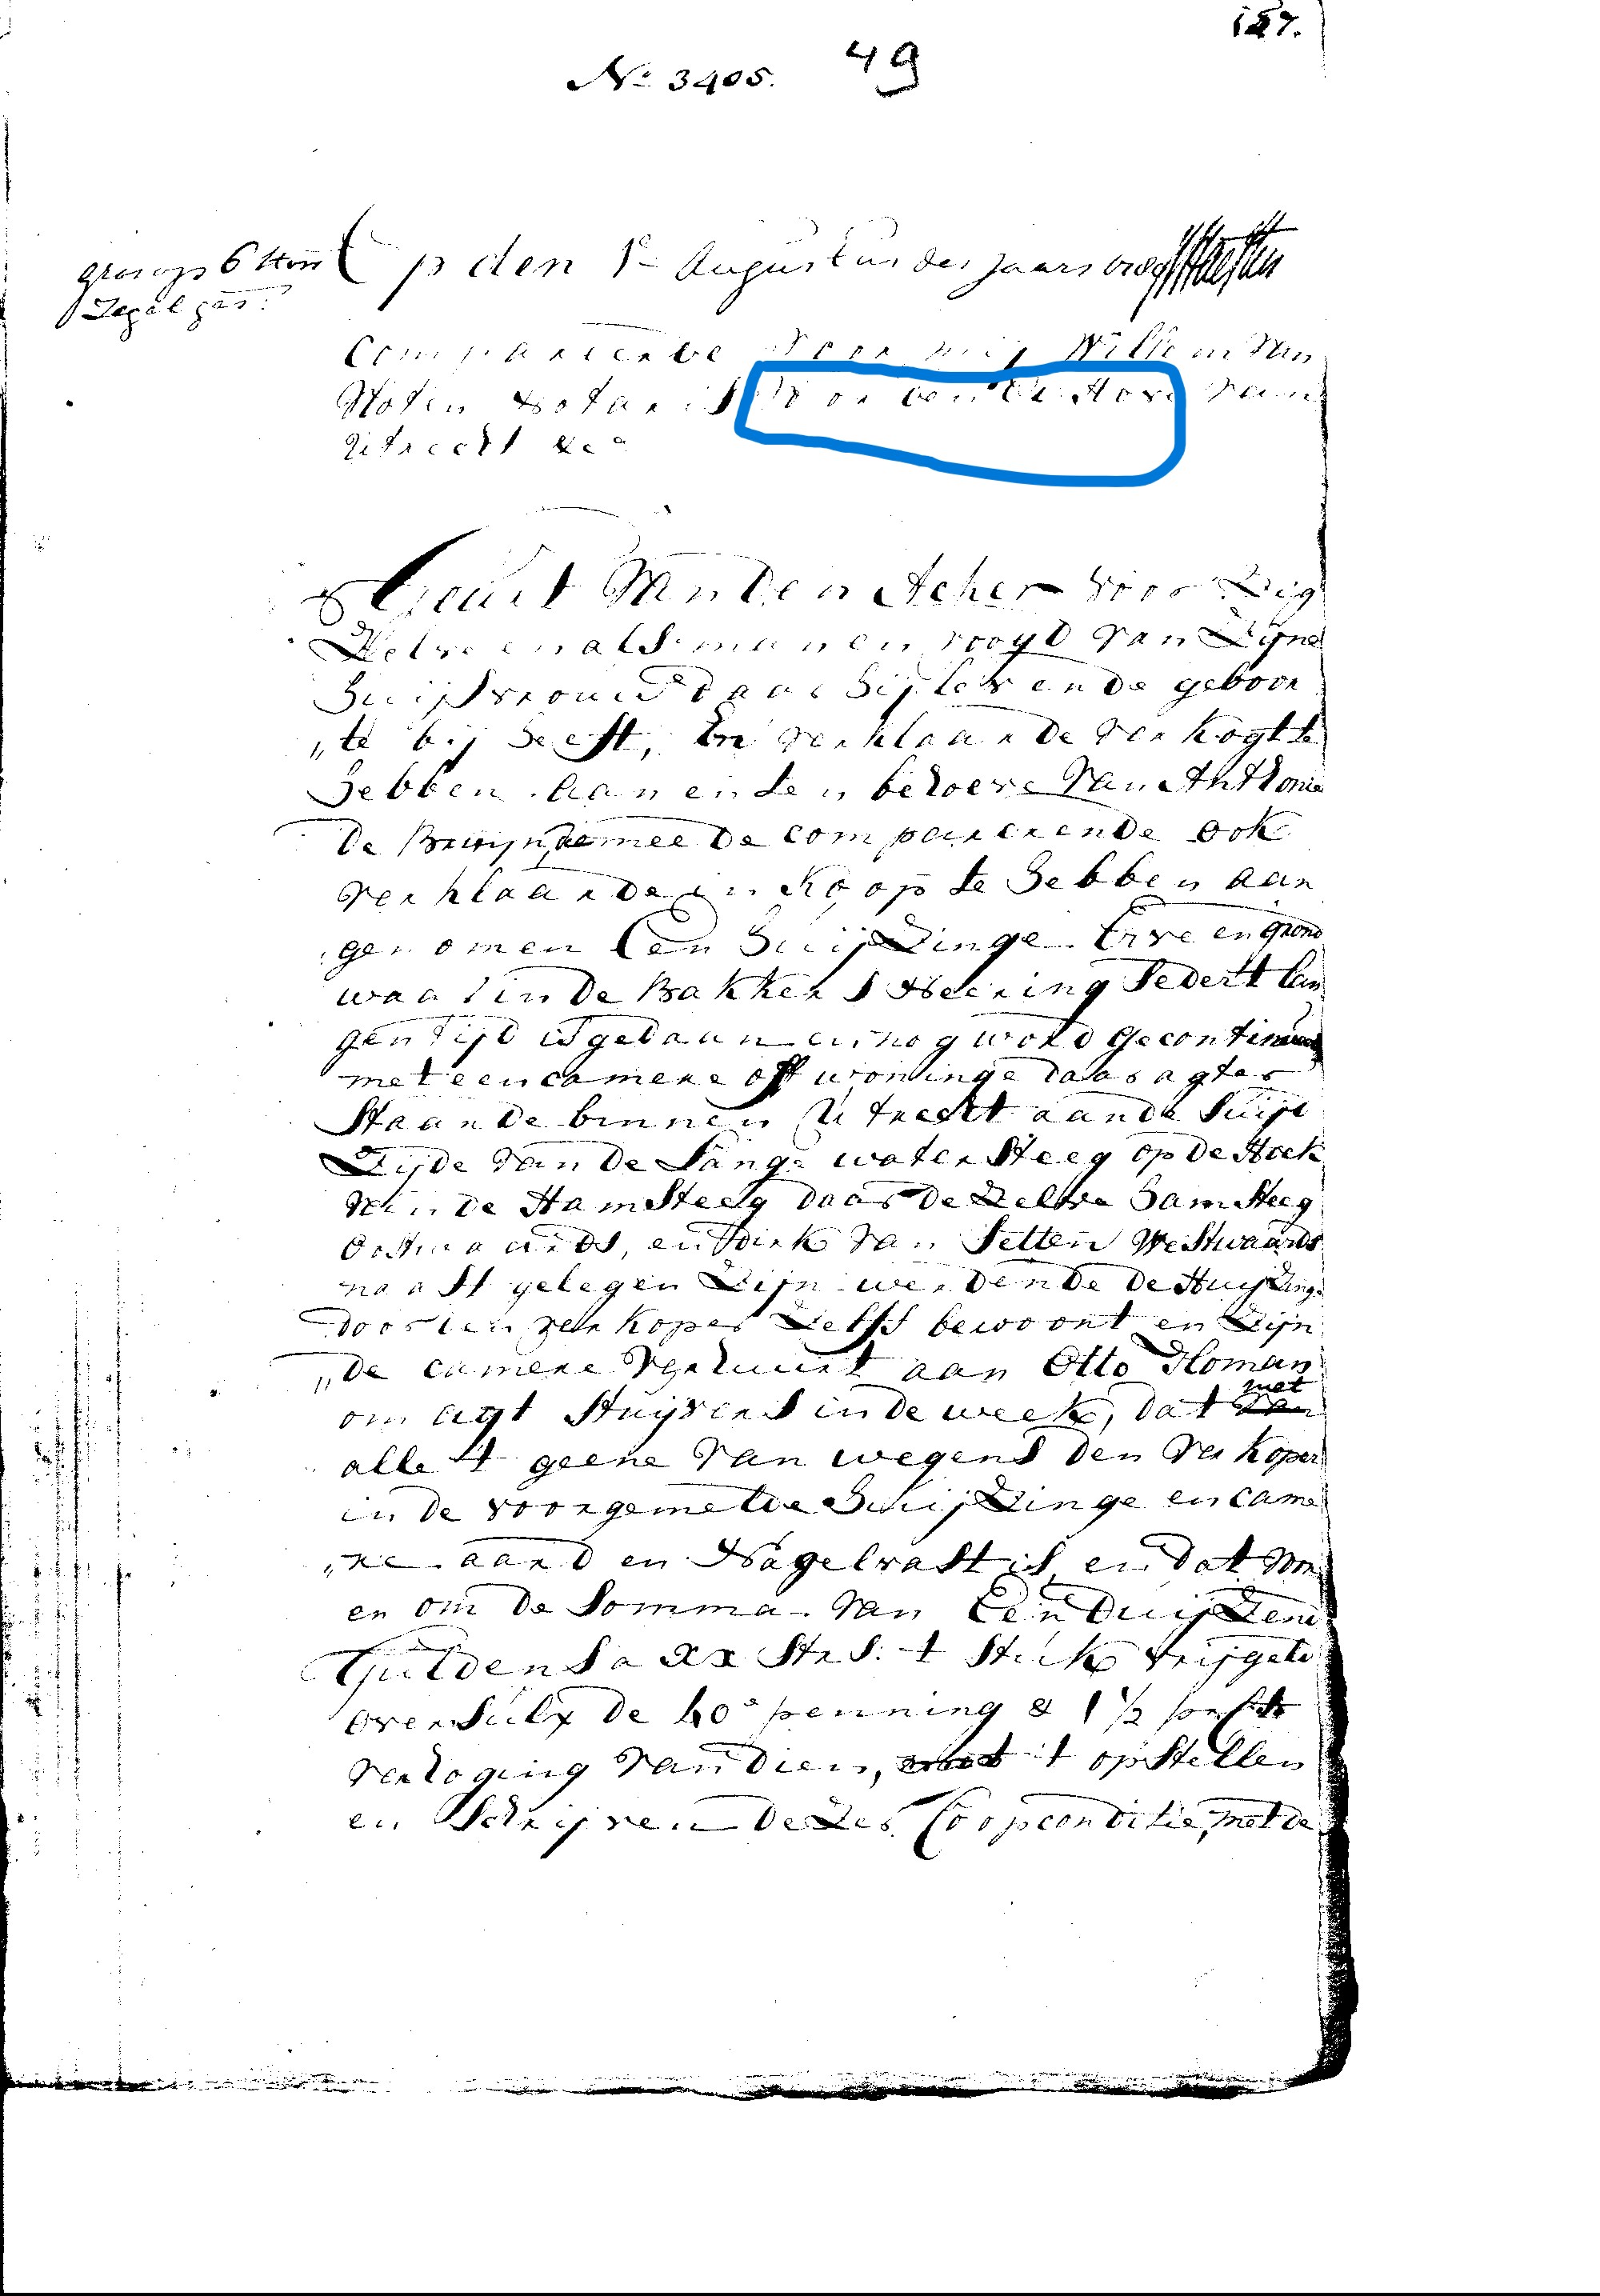 187.
No. 3405. 49
Op den 1e Augustus des jaars
Segel
Compareerde voor mij Willem van
Noten Notaris 's Hove van
Utrecht &ca
Geurt van den Acher voor Zig
Zelve en als man en voogd van Zijne
Huijsvrouw daar bij levende geboor
„te bij heeft, En verklaarde verkogt te
hebben aan en ten behoeve van Anthonie
De Bruijn, de mee de comparerende ook
verklaarde in Koop te hebben aan
genomen Een Huijzinge Erve en grond
waar in de Bakkers Neering sedert lan
gen tijd is gedaan en nog word gecontinueerd
met een camere off wooninge daar agter
Staande binnen Utrecht aan de Suijt
Zijde van de Lange watersteeg op de Hoek
van de Hamsteeg daar de Zelve Hamsteeg
Oostwaards, en Dirk van Setten Westwaards
naast gelegen Zijn werdende de Huijzinge
door den verkoper Zelfs bewoont en Zijn
„de camere verhuurt aan Otto Homan
om agt Stuijvers in de week, dat met
alle 't geene van wegens den verkoper
in de voorgemelde Huijzinge en came
„re aard en Nagelvast is en dat voor
en om de Somma van Een Duijzend
Guldens a XX Strs: 't Stuk vrijgeld
oversulx de 40e penning & 1 1/2
verhoging van dien, 't opstellen
en Schrijven dezes Coopconditie, met de